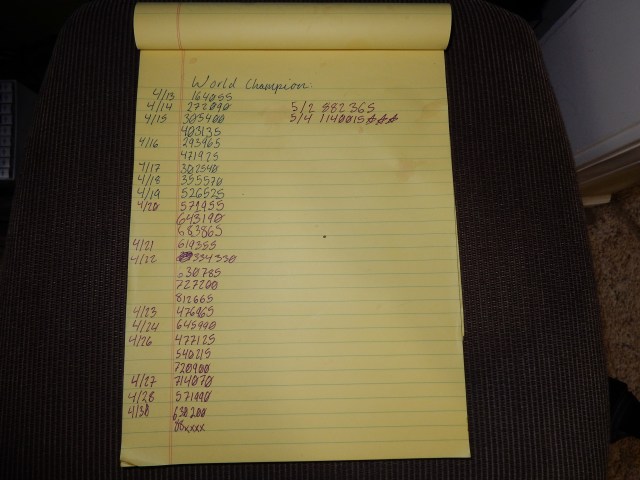 World Champion:
4/13 164055
4/14 272090
4/15 303400
403135
4/16 293965
471925
4/17 302540
4/18 355570
4/19 526525
4/20 571455
643190
683865
4/21 619355
4/22 334330
727200
812665
4/23 476965
4/24 645990
4/26 477125
540215
720900
4/27 714070
4/28 571490
4/30 630200
5/2 882365
5/4 1140015